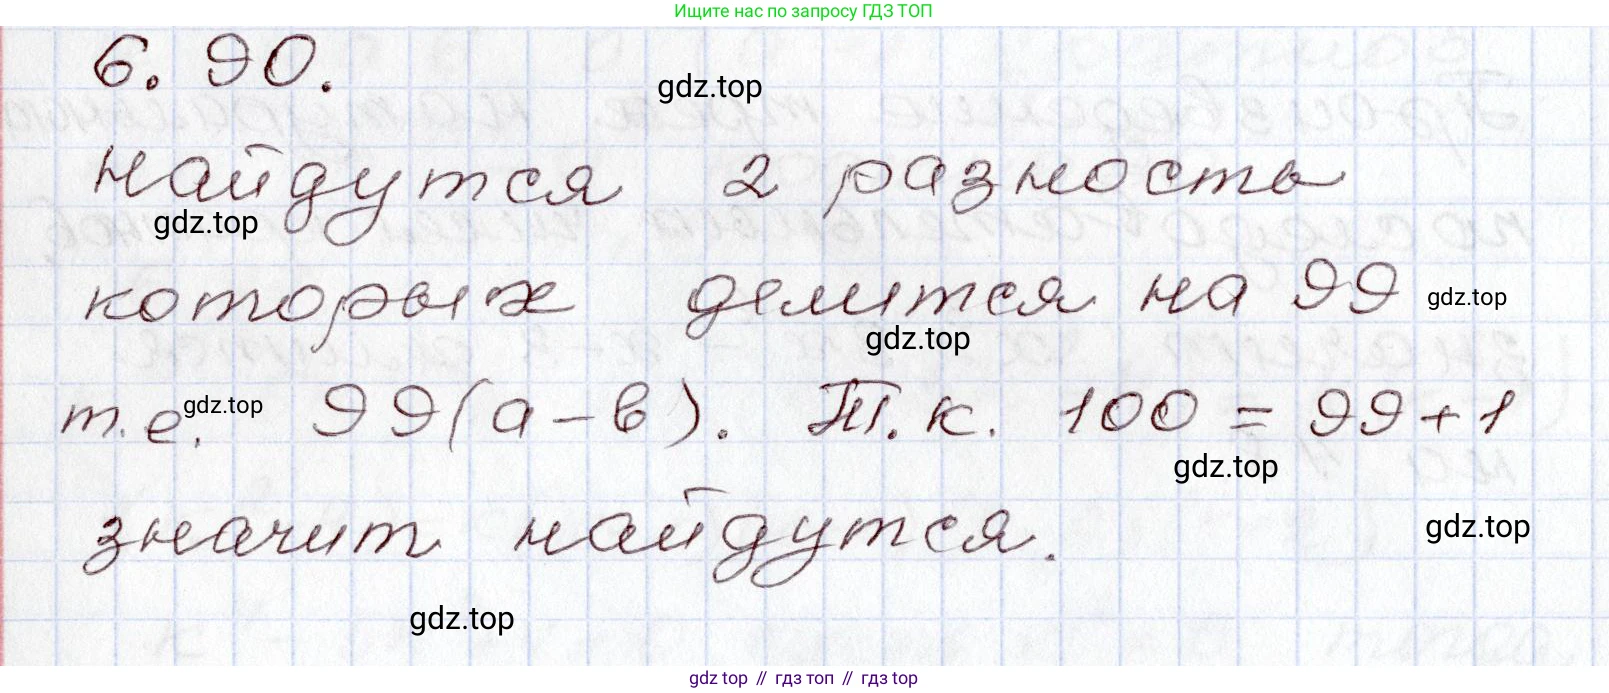 Ищите нас по запросу ГДЗ ТОП
6.90.
gdz.top
найдутся 2 разность
gdz.top
которых делится на 99 gdz.top
gdz.top
т.е. gdz.top 99(a-в). Т.к. 100 = 99+1
gdz.top
значит найдутся.
gdz.top
gdz.top
gdz.top // гдз топ // гдз.top